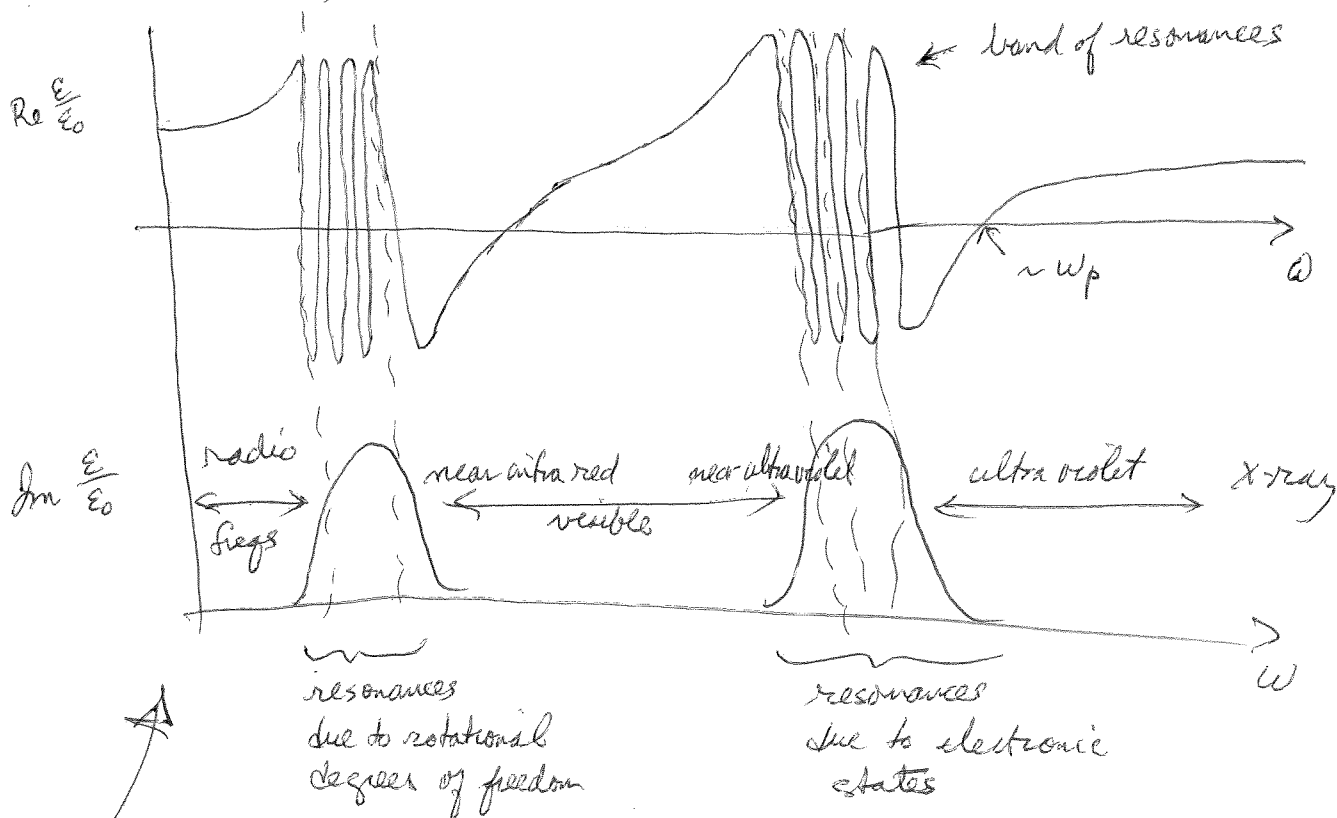 band of resonances
Re ε/ε0
ω
~ ωp
Im ε/ε0
radio
freqs
near infra red
visible
near ultraviolet
ultra violet
X-ray
ω
resonances
due to rotational
degrees of freedom
resonances
due to electronic
states